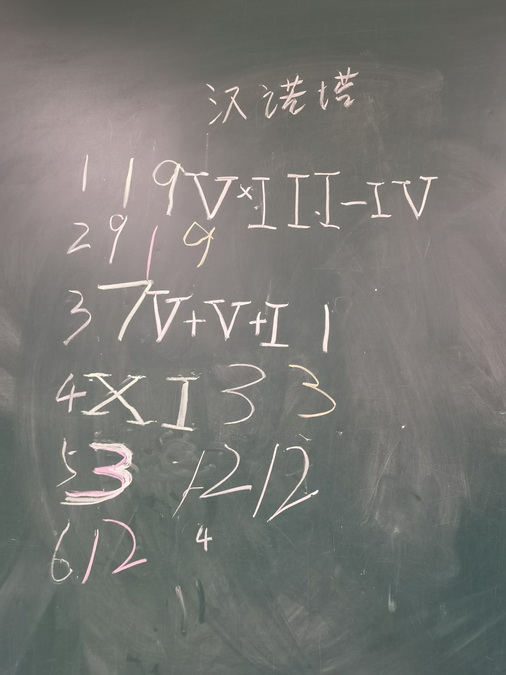 汉诺塔
1 1 9 V×III-IV
2 9 1 9
3 7 V+V+I 1
4 XI 3 3
5 3 12 12
6 12 4